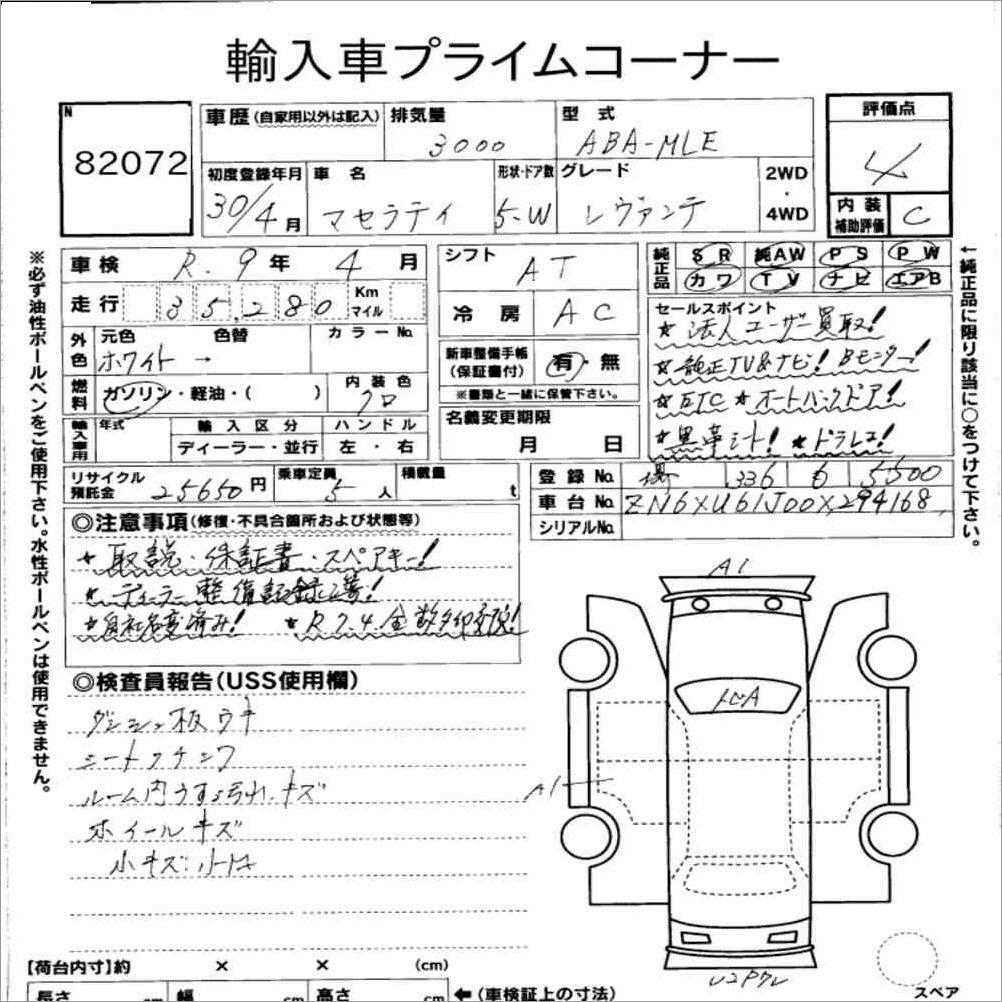 輸入車プライムコーナー
N
82072
車歴(自家用以外は記入)
排気量
3000
型 式
ABA-MLE
評価点
4
初度登録年月
30/4月
車 名
マセラティ
形状・ドア数
5-W
グレード
レヴァンテ
2WD
・
4WD
内 装
補助評価
C
車 検 R. 9 年 4 月
シフト
AT
純正品
SR 純AW PS PW
カワ TV ナビ エアB
走 行 35,280 Km マイル
冷 房
AC
セールスポイント
★ 法人ユーザー買取!
★ 純正TV&ナビ! Bモニター!
★ ETC ★ オートバックドア!
★ 黒革シート! ★ ドラレコ!
外色
元色 色替
ホワイト →
カラーNo.
新車整備手帳
(保証書付)
有・無
※書類と一緒に保管下さい。
燃料
ガソリン・軽油・( )
内 装 色
クロ
名義変更期限
月 日
輸入車用
年式
輸 入 区 分
ディーラー・並行
ハ ン ド ル
左 ・ 右
リサイクル
預託金
25650円
乗車定員
5人
積載量
t
登 録 No. 336 る 5500
車 台 No. ZN6XU61J00X294168
シリアルNo.
◎注意事項(修復・不具合箇所および状態等)
★ 取説・保証書・スペアキー!
★ ディーラー整備記録簿!
★ 自社名変済み! ★ R7.4
◎検査員報告(USS使用欄)
ダッシュ板ウキ
シート
ルーム内うすよごれ、キズ
ホイールキズ
小キズ、小凹
A1
トビA
A1
【荷台内寸】約 × × (cm)
長さ cm 幅 cm 高さ cm ←(車検証上の寸法)
スペア
※必ず油性ボールペンをご使用下さい。水性ボールペンは使用できません。
←純正品に限り該当に○をつけて下さい。